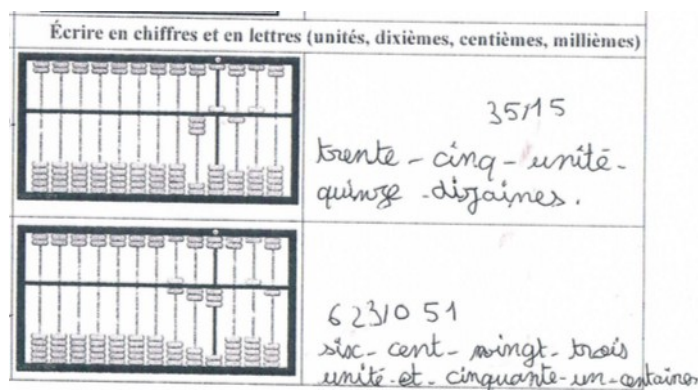 Écrire en chiffres et en lettres (unités, dixièmes, centièmes, millièmes)
35,15
trente-cinq-unité-
quinze-dizaines.
623,051
six-cent-vingt-trois
unité-et-cinquante-un-centaines